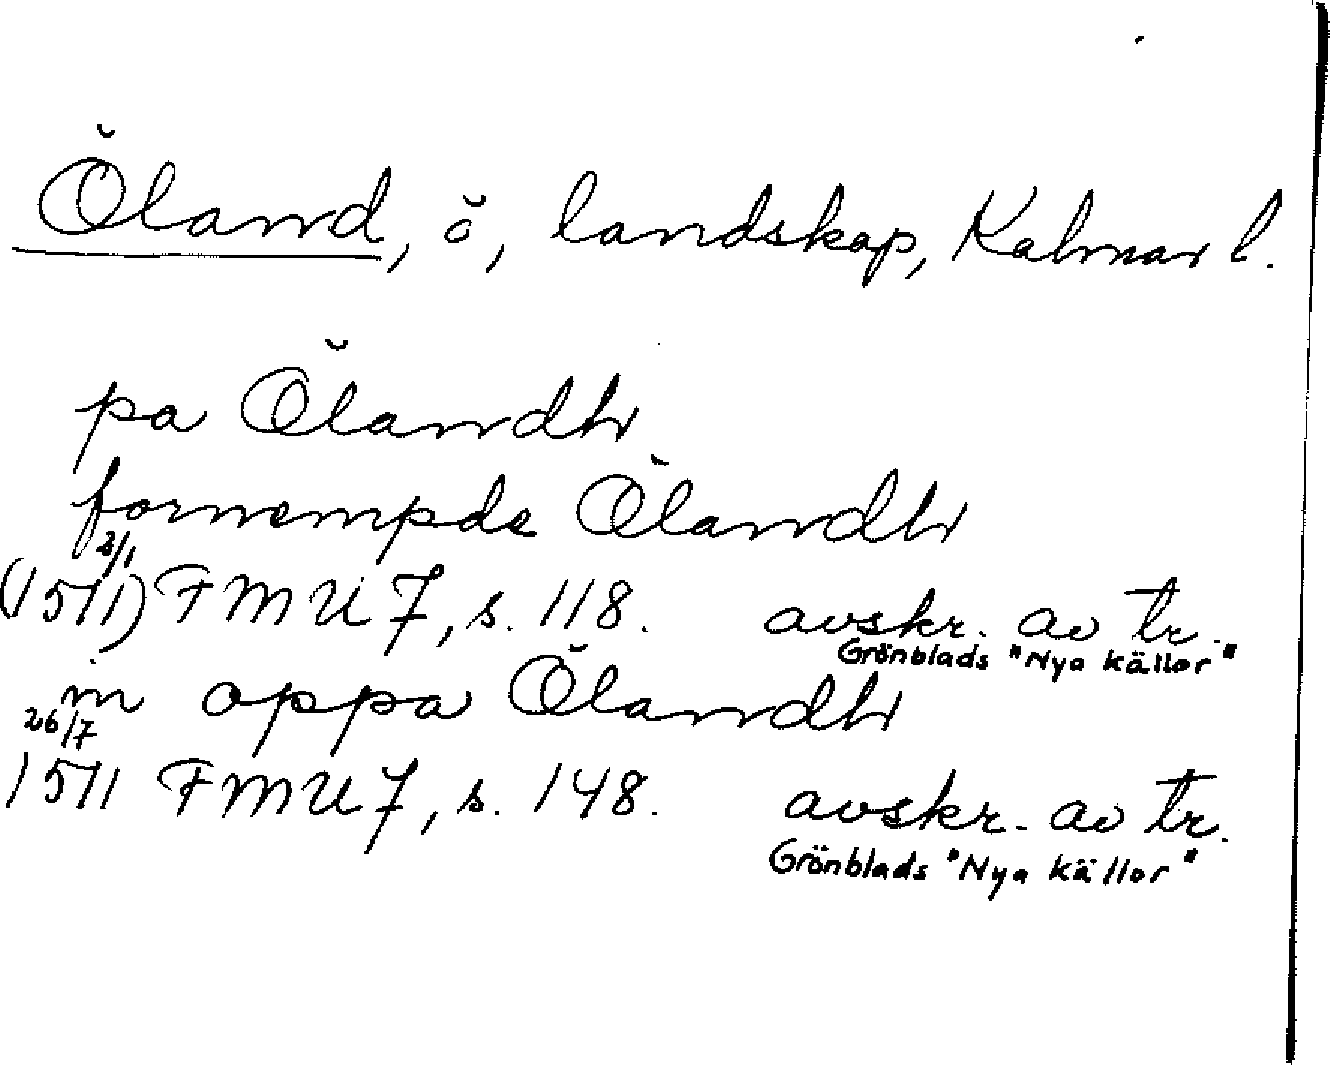 Öland, ö, landskap, Kalmar l.
pa Ölandh
fornempde Ölandh
2/1
(1511) FMU 7, s. 118. avskr. av tr.
Grönblads "Nya källor"
in oppa Ölandh
26/7
1511 FMU 7, s. 148. avskr. av tr.
Grönblads "Nya källor"